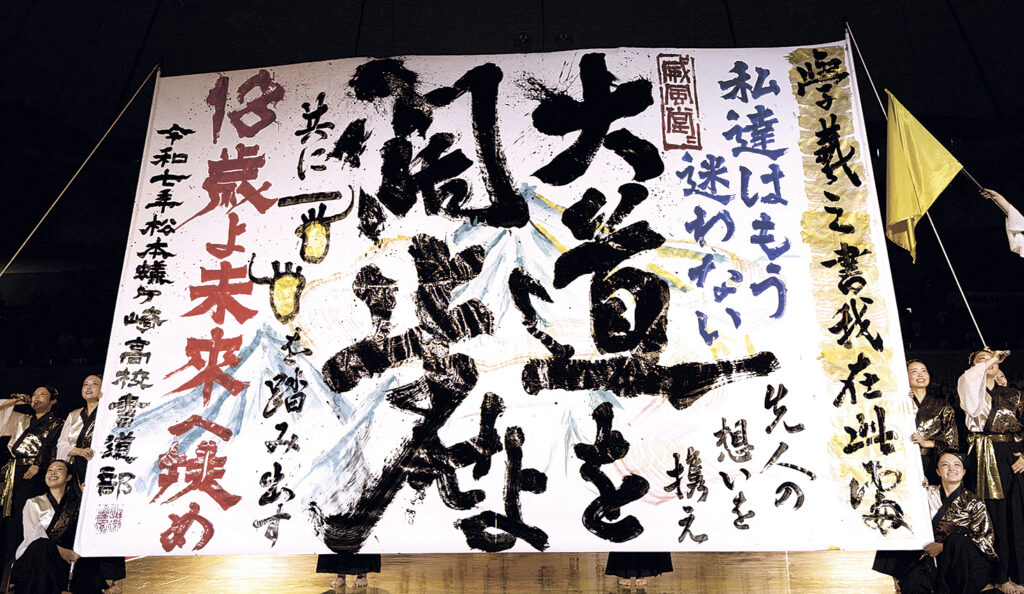 學羲之書我在此
私達はもう
迷わない
威風堂々
先人の
想いを
携え
大道を
闊歩せよ
共に
を踏み出す
18歳よ未來へ挑め
令和七年松本蟻ヶ崎高校書道部